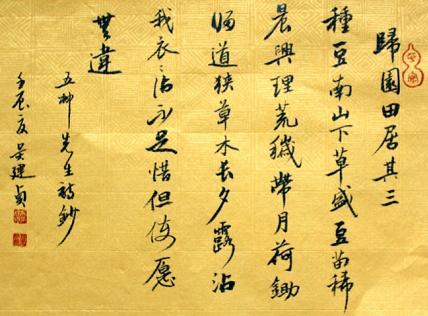 歸園田居其三
種豆南山下草盛豆苗稀
晨興理荒穢帶月荷鋤
歸道狹草木長夕露沾
我衣沾不足惜但使愿
無違
五柳先生詩鈔
壬辰夏吴建貞